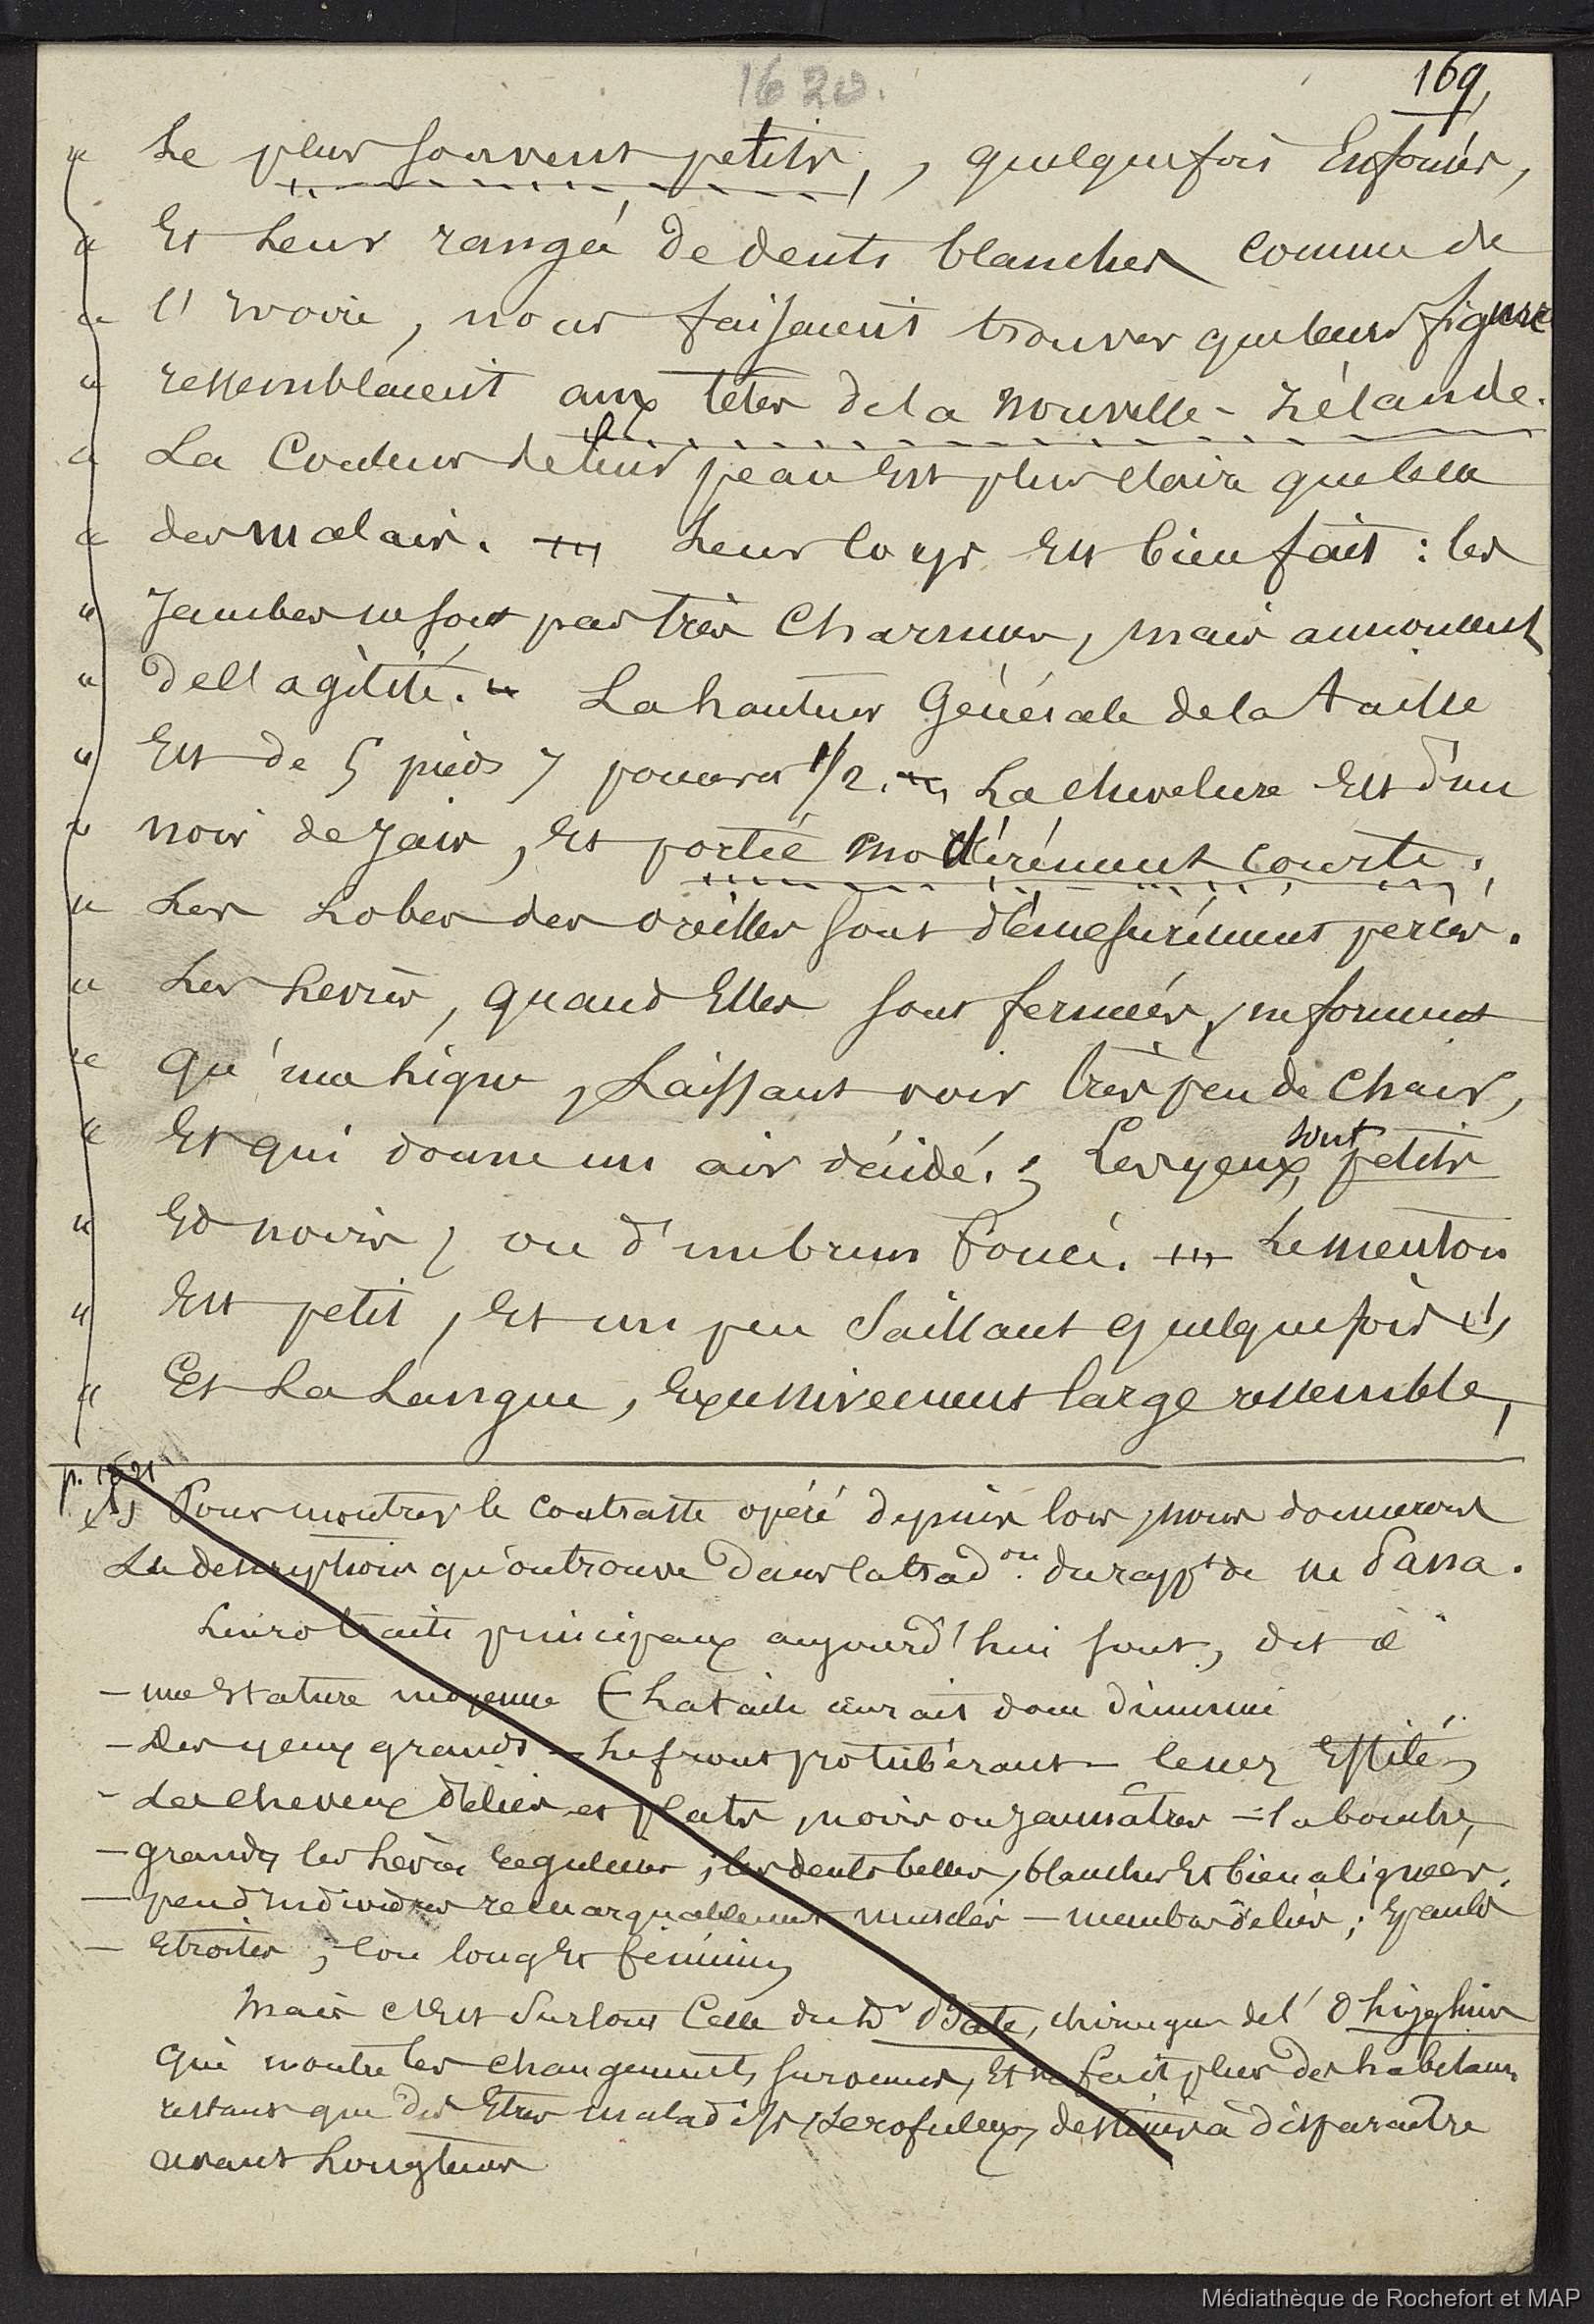 1620.
169,
" Le plus souvent petits, , quelquefois Enfoncés,
" Et Leur rangée de dents blanches comme de
" l'Ivoire, nous faisaient trouver que leurs figure
" ressemblaient aux têtes de la Nouvelle-Zélande.
" La Couleur de leur peau Est plus claire que celle
" des malais. Leur Corps Est bien fait : les
" Jambes ne sont pas très Charnues, mais annoncent
" de l'agilité. La hauteur Générale de la taille
" Est de 5 pieds 7 pouces 1/2. La chevelure Est d'un
" noir de Jais, Et portée modérément courte.
" Les Lobes des oreilles sont démesurément percés.
" Les Lèvres, quand Elles sont fermées, ne forment
" qu'une Ligne, Laissant voir très peu de Chair,
" Et qui donne un air décidé. ; Les yeux, sont petits
" Et noirs, ou d'un brun foncé. Le menton
" Est petit, Et un peu Saillant quelquefois (1)
" Et La Langue, Excessivement large ressemble,
p. 1621
(1) Pour montrer le contraste opéré depuis lors, nous donnerons
La description qu'on trouve dans la trad.on du rapp.t de M Sassa.
Leurs traits principaux aujourd'hui sont, dit il
— une Stature moyenne ( La taille aurait donc diminué
— Des yeux grands — Le front protubérant — le nez Effilé,
- Les cheveux déliés et plats, noirs ou jaunâtres — la bouche,
— grande, les Lèvres régulières ; les dents belles, blanches Et bien alignées.
— peu d'individus remarquablement musclés — membres déliés ; Epaules
— Etroites ; cou long Et féminin,
Mais c'Est Surtout Celle du Dr Bate, chirurgien de l'Ohiggins
qui montre les changements survenus, Et ne fait plus des habitans
restants que des Etres maladifs, Scrofuleux, destinés à disparaître
avant Longtems
Médiathèque de Rochefort et MAP